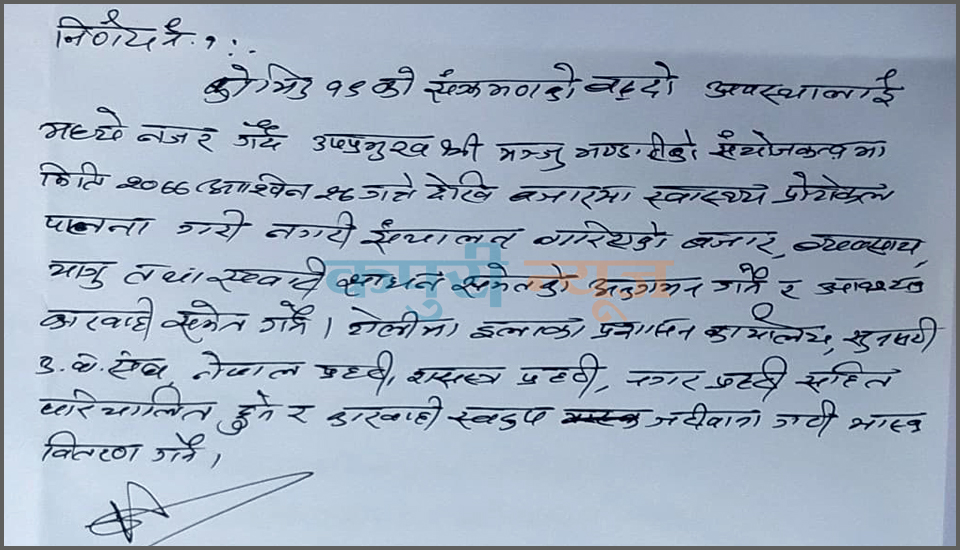 निर्णय नं. १ :.
कोभिड १९ को संक्रमणको बढ्दो अवस्थालाई
मध्ये नजर गर्दै उपप्रमुख श्री मञ्जु भण्डारीको संयोजकत्वमा
मिति २०७७ आश्विन १८ गते देखि बजारमा स्वास्थ्य प्रोटोकल
पालना गरी नगरी संचालन गरिएको बजार, व्यवसाय,
यात्रु तथा सवारी साधन समेतको अनुगमन गर्ने र आवश्यक
कारवाही समेत गर्ने । टोलीमा इलाका प्रशासन कार्यालय, सुनसरी
उ.वा.संघ, नेपाल प्रहरी, शसस्त्र प्रहरी, नगर प्रहरी सहित
परिचालित हुने र कारवाही स्वरुप जरीवाना गरी मास्क
वितरण गर्ने ।
कपुरी न्यूज